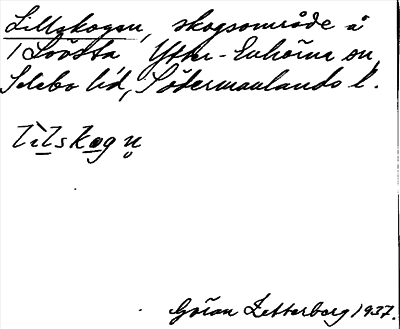 Lillskogen, skogsområde å
1 Lövsta Ytter-Enhörna sn,
Selebo hd, Södermanlands l.
lìlskogn̥
Göran Zetterberg 1937.